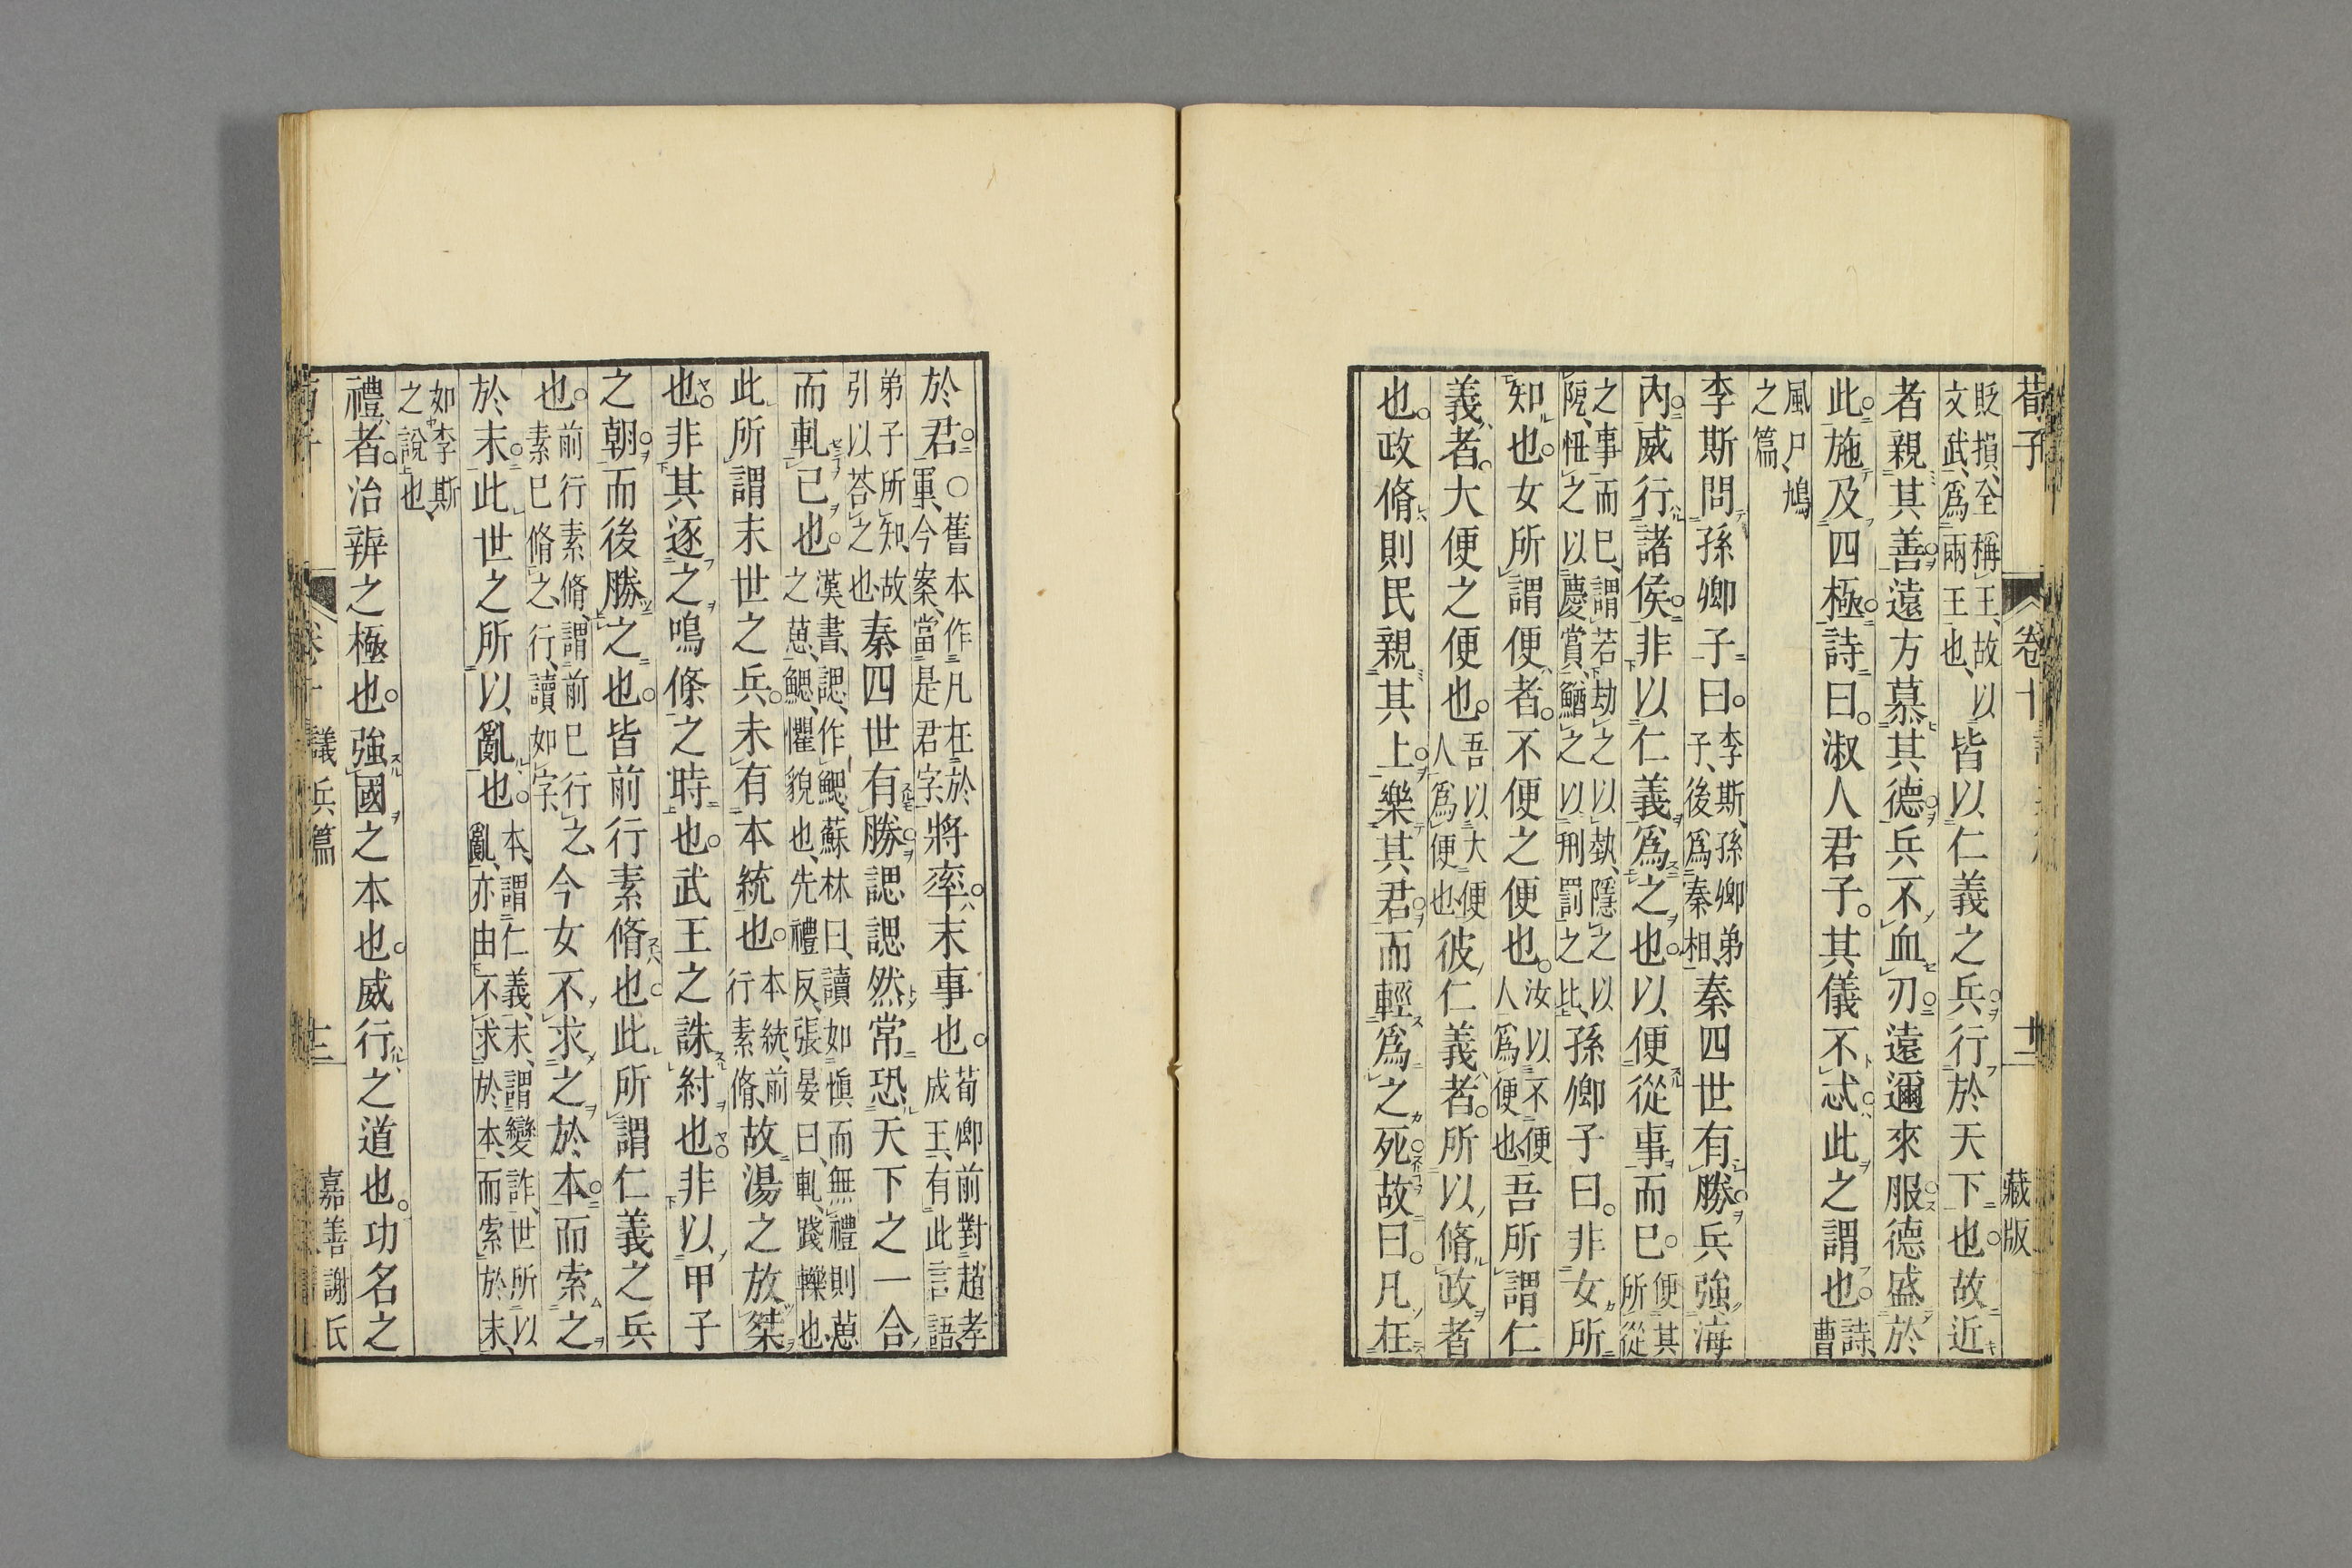 荀子 卷十 十二 藏版
貶損、至稱王、故以文武、爲兩王也、皆以仁義之兵。行於天下也。故近
者親其善。遠方慕其德。兵不血刃。遠邇來服。德盛於
此。施及四極。詩曰。淑人君子。其儀不忒。此之謂也。詩、曹
風尸鳩之篇、
李斯問孫卿子曰。李斯、孫卿弟子、後爲秦相、秦四世有勝。兵強海
內。威行諸侯。非以仁義爲之也。以便從事而已。便其所從
之事而已、謂若劫之以埶、隱之以阸、忸之以慶賞、鰌之以刑罰之比、孫卿子曰。非女所
知也。女所謂便者。不便之便也。汝以不便人爲便也、吾所謂仁
義者。大便之便也。吾以大便人爲便也、彼仁義者。所以脩政者
也。政脩則民親其上。樂其君。而輕爲之死。故曰。凡在
於君。〇舊本作凡在於軍、今案、當是君字、將率。末事也。荀卿前對趙孝成王、有此言語、
弟子所知、故引以荅之也、秦四世有勝。諰諰然常恐天下之一合
而軋己也。漢書、諰作鰓、蘇林曰、讀如愼而無禮則葸之葸、鰓、懼貌也、先禮反、張晏曰、軋、踐轢也、
此所謂末世之兵。未有本統也。本統、前行素脩、故湯之放桀
也。非其逐之鳴條之時也。武王之誅紂也。非以甲子
之朝。而後勝之也。皆前行素脩也。此所謂仁義之兵
也。前行素脩、謂前已行之、素已脩之、行、讀如字、今女不求之於本。而索之
於末。此世之所以亂也。本、謂仁義、末、謂變詐、世所以亂、亦由不求於本、而索於末、
如李斯之說也、
禮者。治辨之極也。強國之本也。威行之道也。功名之
荀子 卷十 議兵篇 十三 嘉善謝氏